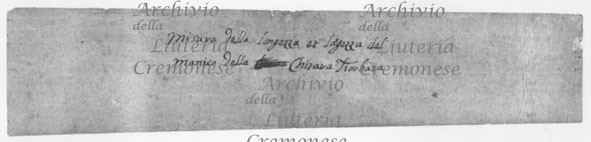 Archivio Archivio
della della
Liuteria Liuteria
Cremonese Cremonese
Misura della longezza et lagezza del
manico della Chitara Tiorbata
Archivio
della
Liuteria
Cremonese